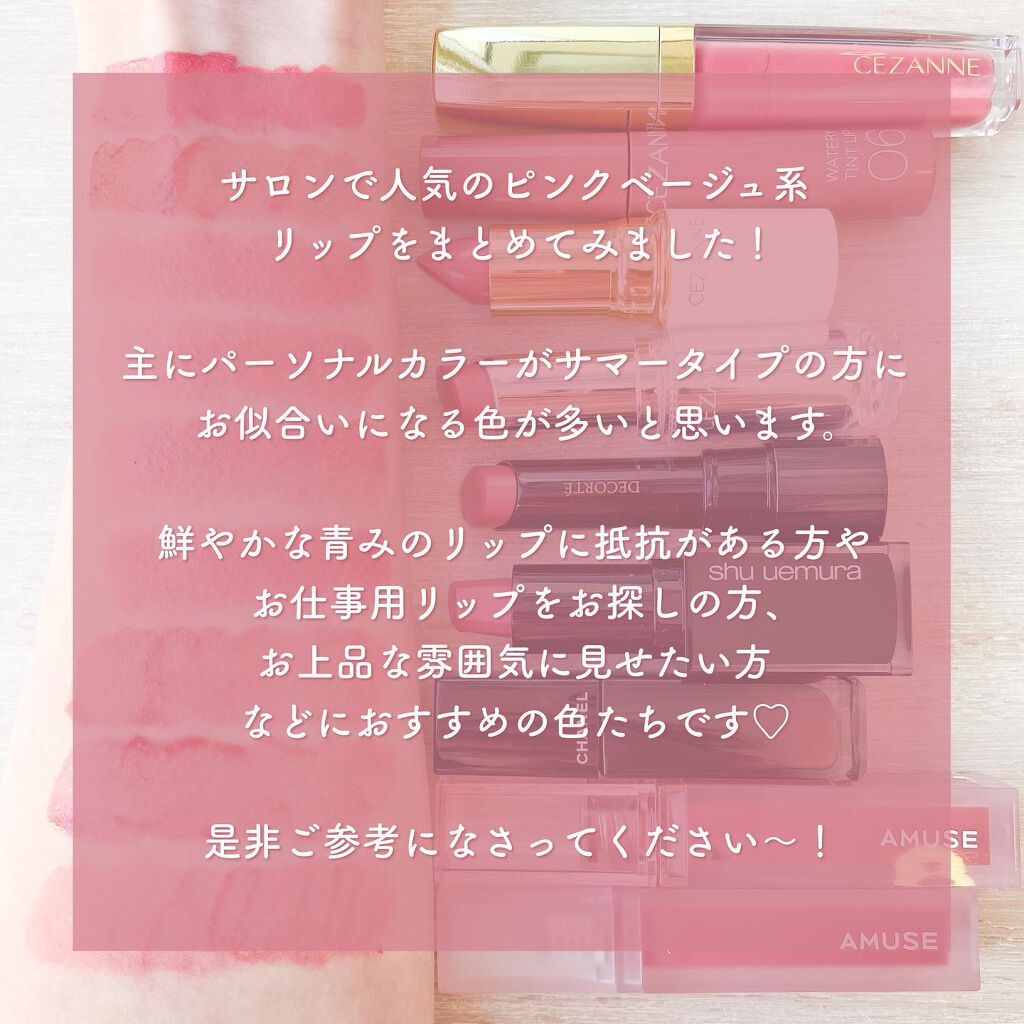 CEZANNE
CEZANNE
WATERY
TINT LIP
06
サロンで人気のピンクベージュ系
リップをまとめてみました！
CEZANNE
主にパーソナルカラーがサマータイプの方に
お似合いになる色が多いと思います。
DECORTÉ
鮮やかな青みのリップに抵抗がある方や
shu uemura
お仕事用リップをお探しの方、
お上品な雰囲気に見せたい方
などにおすすめの色たちです♡
CHANEL
是非ご参考になさってください〜！
AMUSE
AMUSE